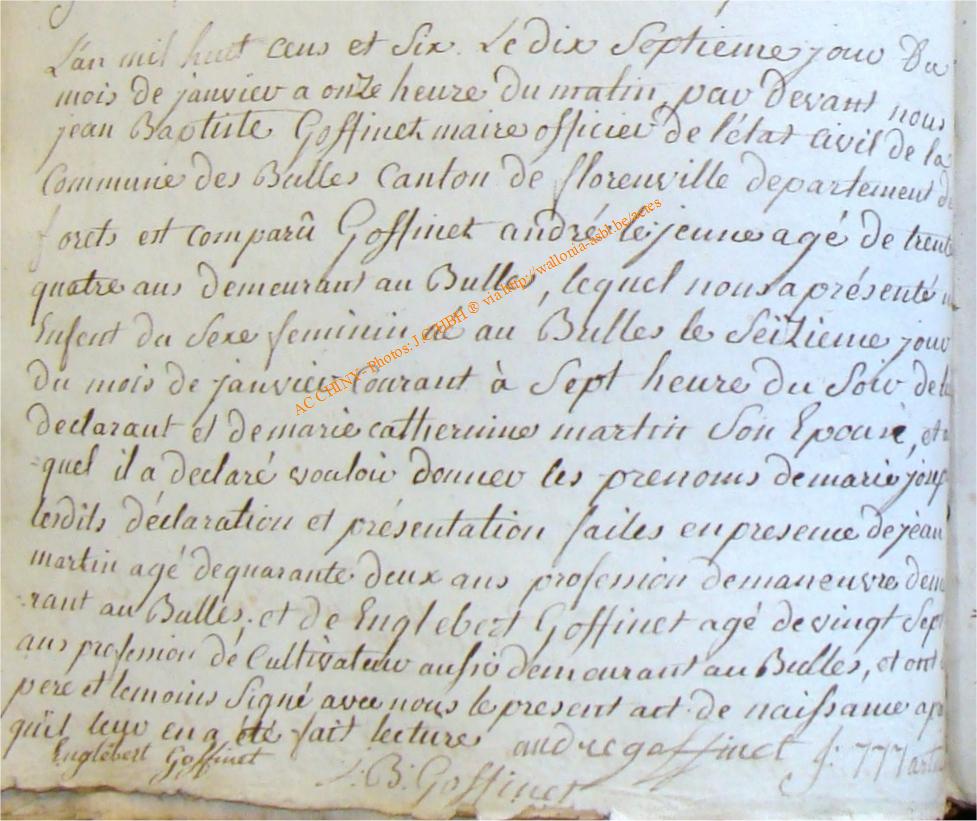 L'an mil huit cens et Six. Le dix Septieme jour Du
mois de janvier a onze heure du matin, par Devant nous
jean Baptiste Goffinet maire officier de l'état civil de la
Commune des Bulles Canton de florenville departement de
forets est comparû Goffinet andré le jeune agé de trente
quatre ans demeurant au Bulles, lequel nous a présenté
Enfent du Sexe feminin né au Bulles le Seizieme jour
du mois de janvier Courant à Sept heure du Soir de
declarant et de marie catherinne martin Son Epouse, et
quel il a declaré vouloir donner les prenoms de marie
lesdits déclaration et présentation faites en presence de jean
martin agé de quarante deux ans profession demaneuvre dem
rant au Bulles, et de Englebert Goffinet agé de vingt Sept
ans profession dé Cultivateur aussi demeurant au Bulles, et ont
pere et temoins Signé avec nous le present act de naissance apr
quil leur en a été fait lecture andre goffinet J: Martin
Englebert Goffinet
J: B: Goffinet
AC CHINY- Photos: J CTHBH ® via http://wallonia-asbl.be/actes